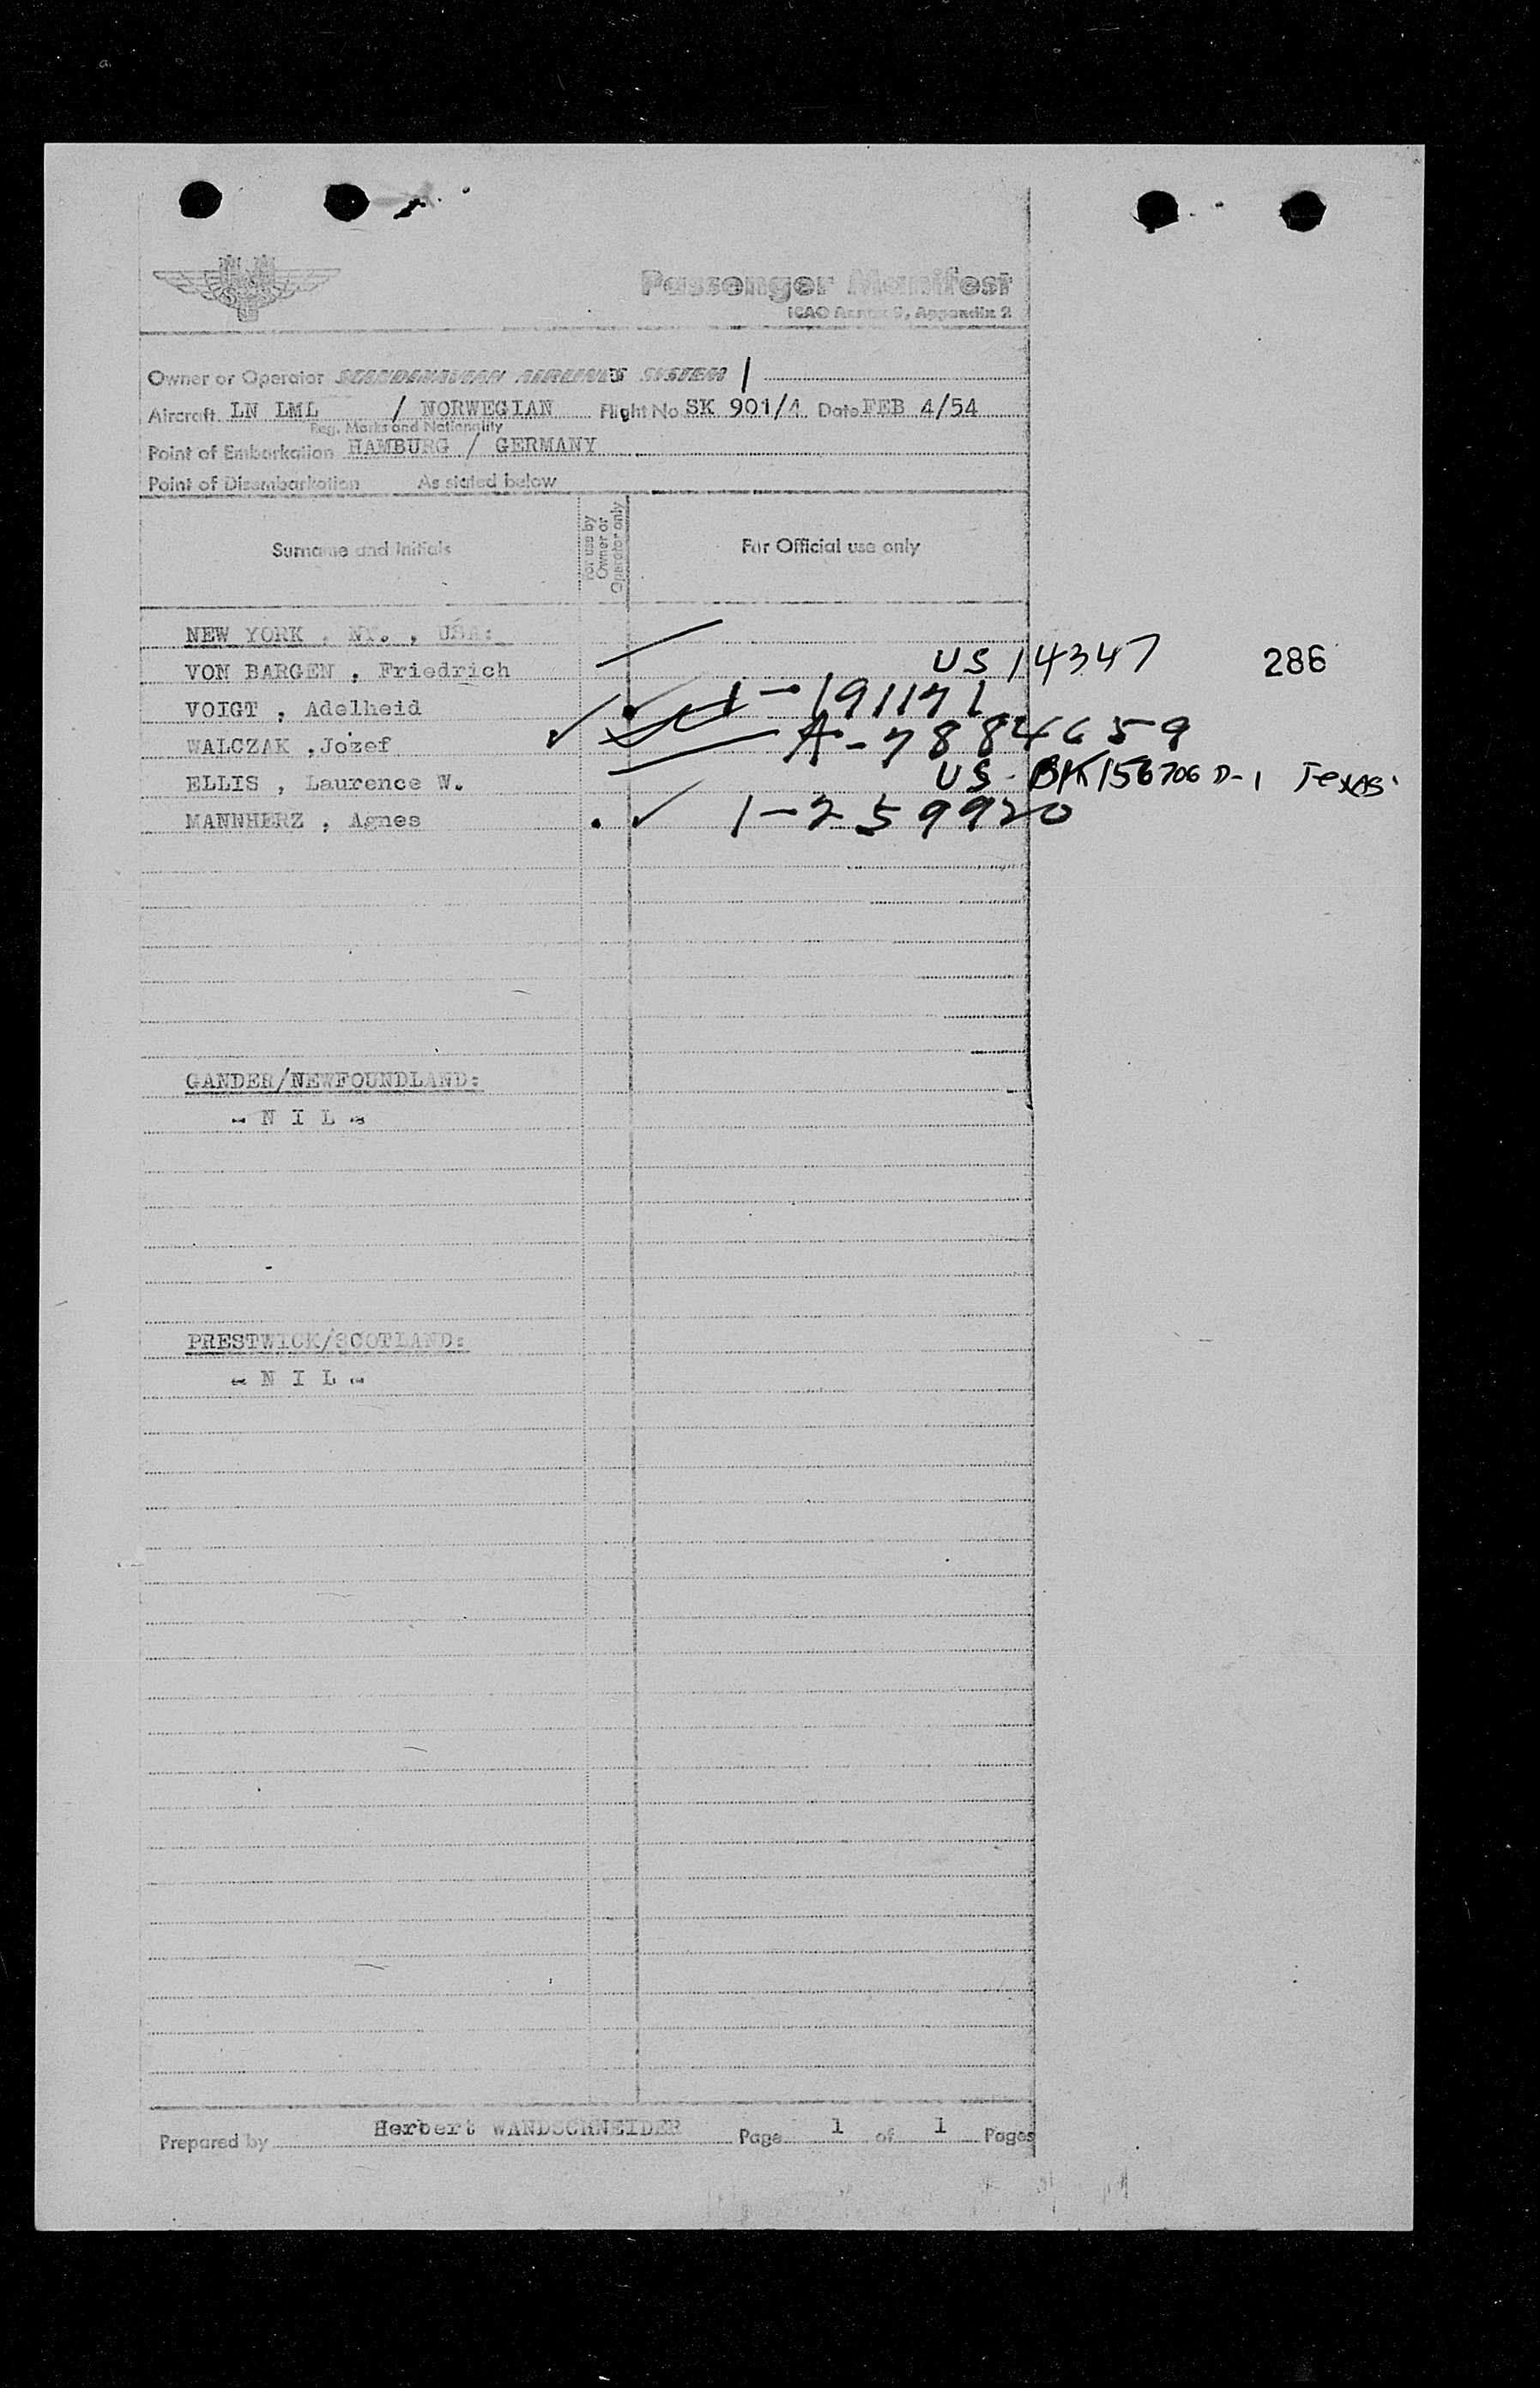 SAS
Passenger Manifest
ICAO Annex 9, Appendix 2
Owner or Operator SCANDINAVIAN AIRLINES SYSTEM /
Aircraft LN LML / NORWEGIAN Flight No SK 901/4 Date FEB 4/54
Reg. Marks and Nationality
Point of Embarkation HAMBURG / GERMANY
Point of Disembarkation As stated below
Surname and Initials
For use by Owner or Operator only
For Official use only
NEW YORK , NY. , USA:
VON BARGEN , Friedrich US 14347 286
VOIGT , Adelheid 1-191171
WALCZAK ,Jozef A-7884659
ELLIS , Laurence W. US- BK156706 D-1 Texas
MANNHERZ , Agnes 1-259920
GANDER/NEWFOUNDLAND:
- N I L -
PRESTWICK/SCOTLAND:
- N I L -
Prepared by Herbert WANDSCHNEIDER Page 1 of 1 Pages